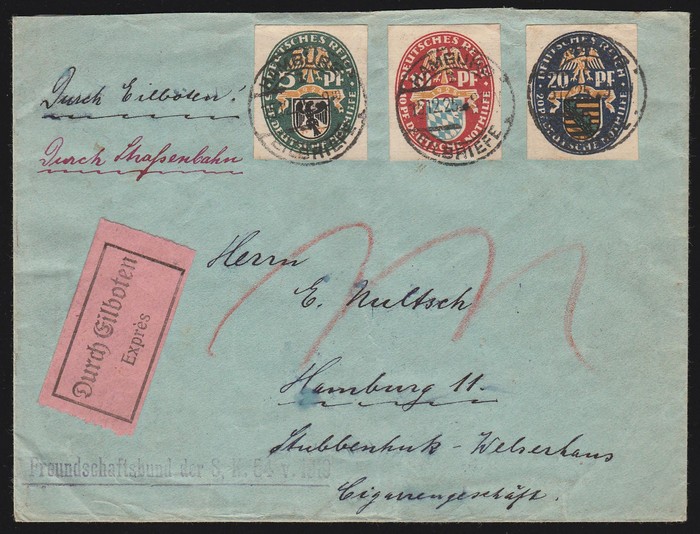 DEUTSCHES REICH
5 PF
DEUTSCHE NOTHILFE
DEUTSCHES REICH
PF
DEUTSCHE NOTHILFE
DEUTSCHES REICH
20 PF
DEUTSCHE NOTHILFE
HAMBURG
EILBRIEFE
HAMBURG
EILBRIEFE
Durch Eilboten!
Durch Straßenbahn
Durch Eilboten
Exprès
Herrn
E. Nultsch
Hamburg 11.
Stubbenhuk - Welserhaus
Cigarrengeschäft.
Freundschaftsbund der